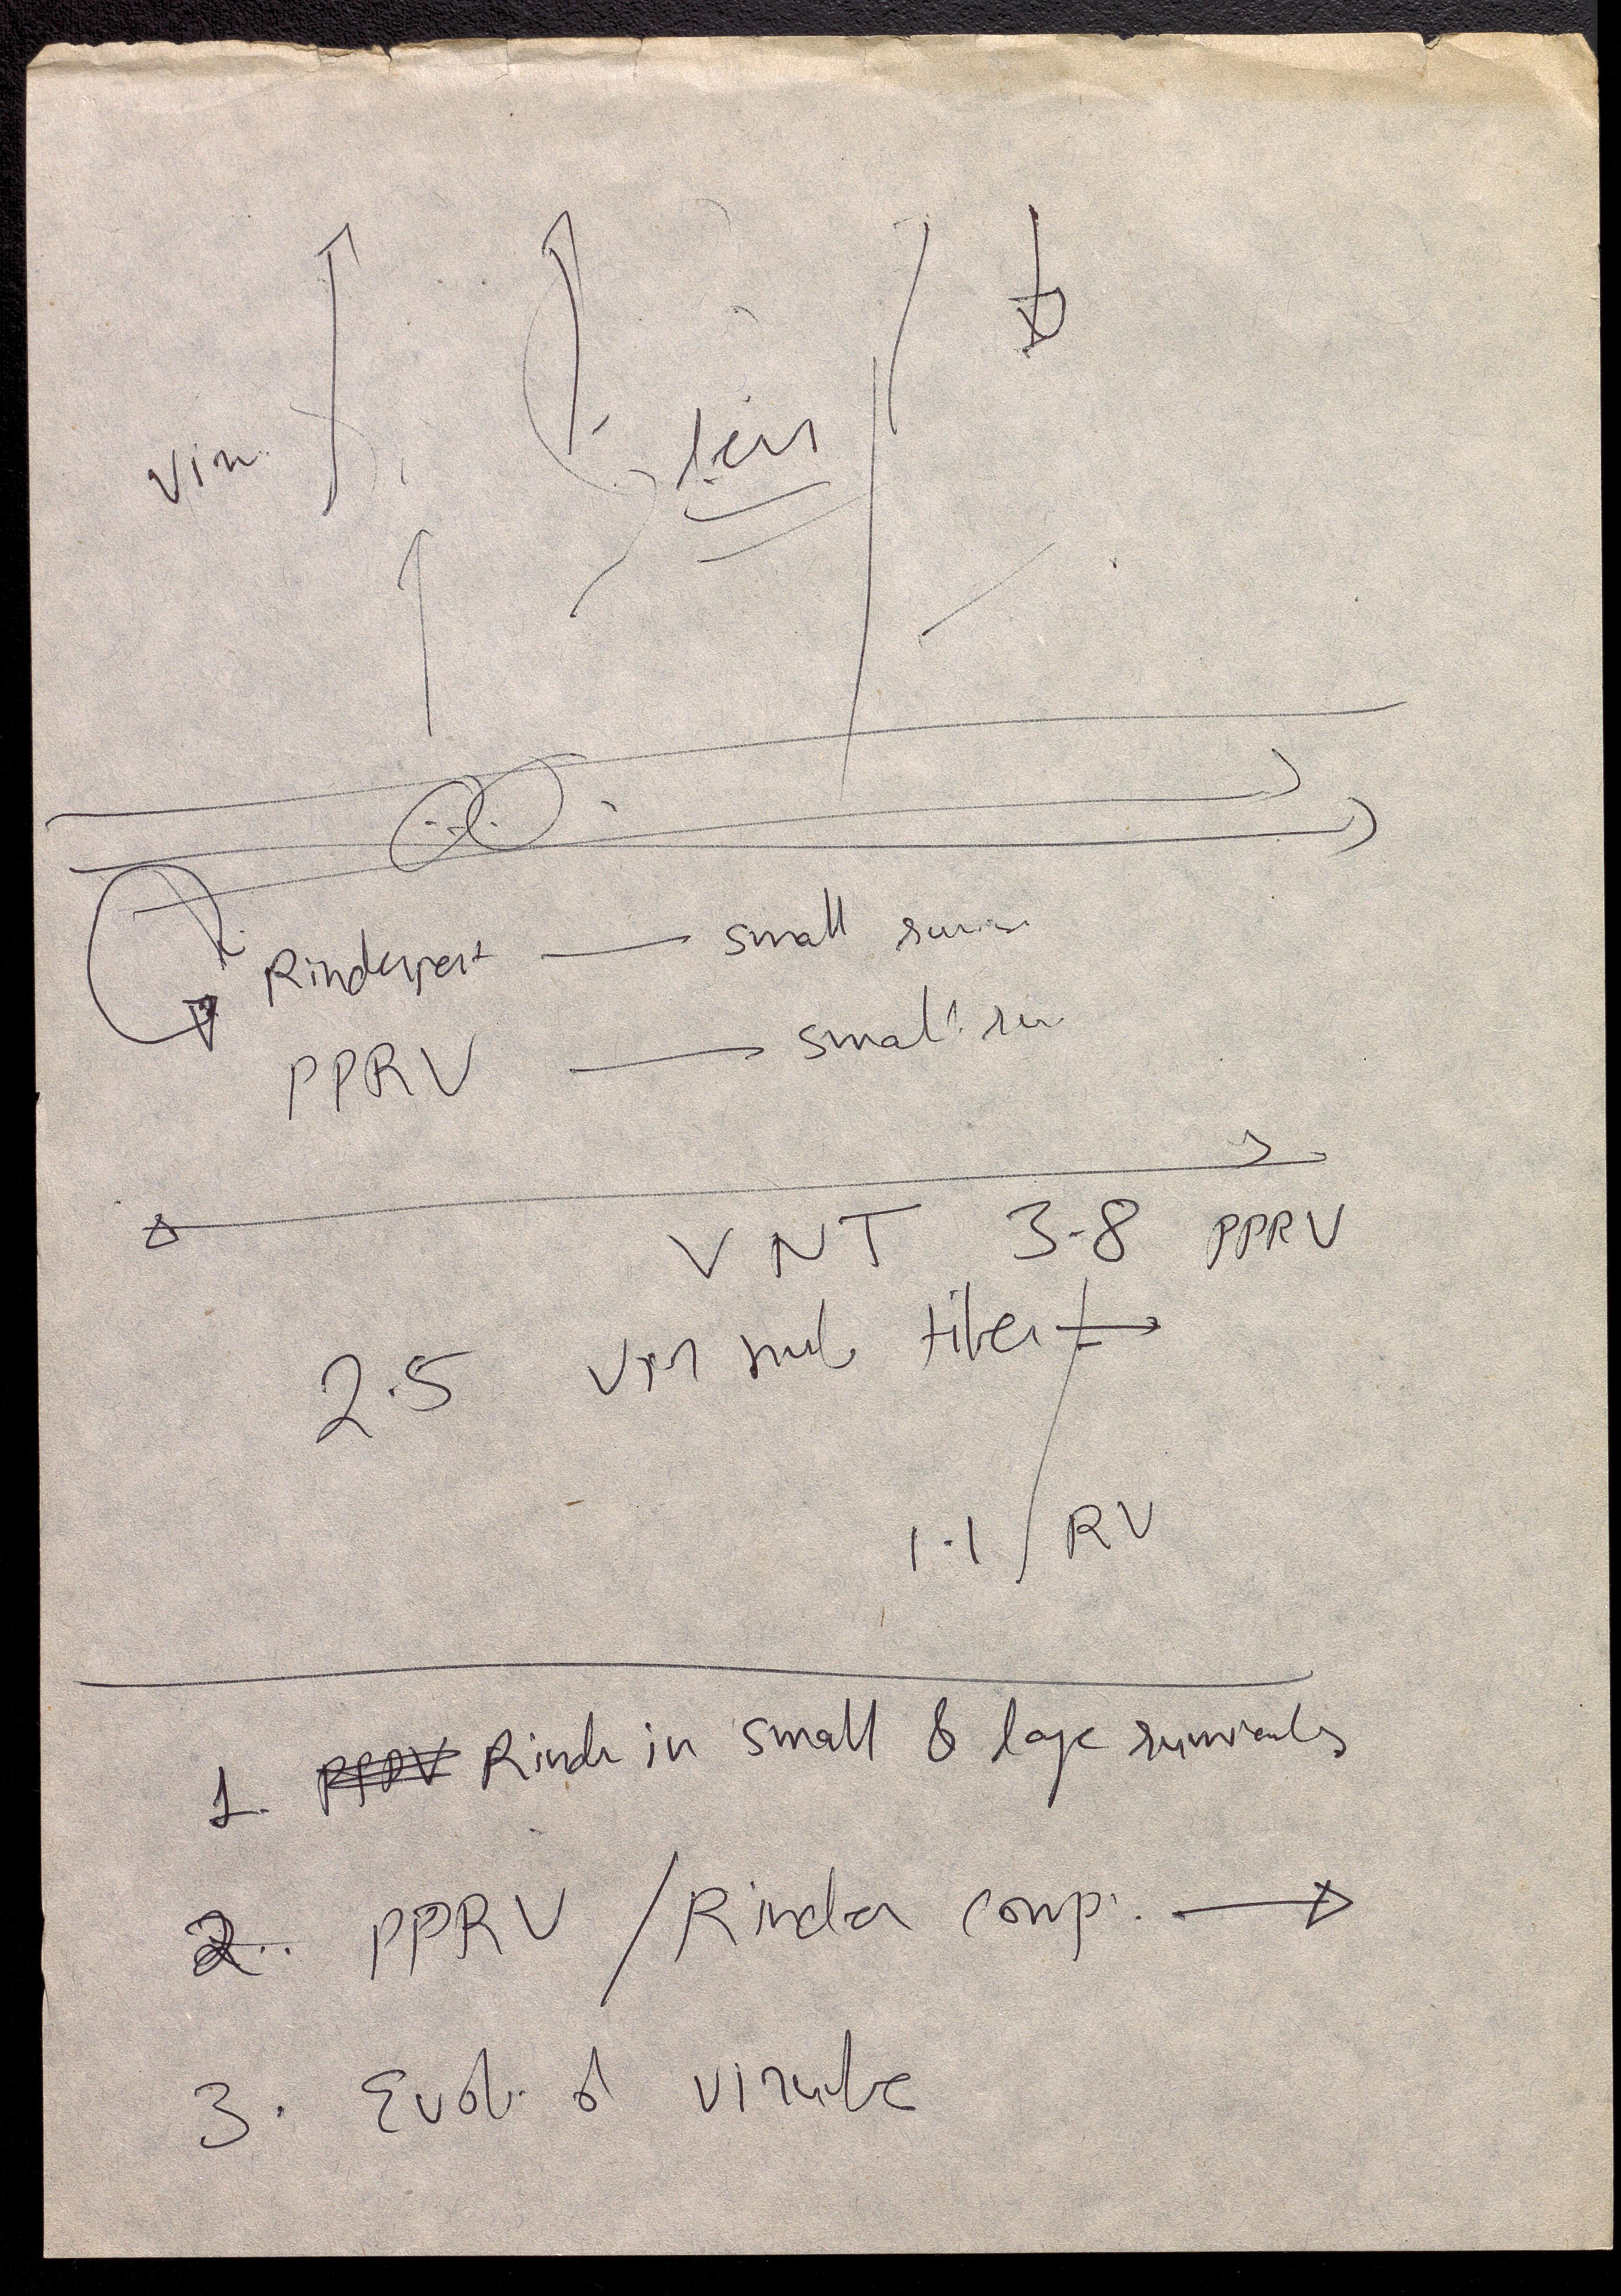 Vir
less
Rinderpest — small rumin
PPRV — small rum
VNT 3.8 PPRV
2.5 titer →
1.1 / RV
1. Rinde in small & large ruminants
2. PPRV / Rinder comp. →
3. Evol. of virulence